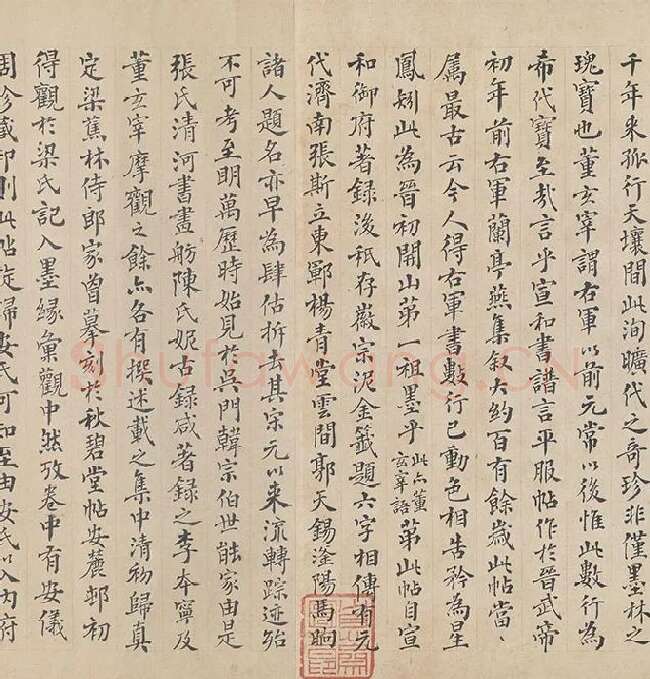 千年来孤行天壤間此洵曠代之奇珍非僅墨林之
瑰寶也董玄宰謂右軍以前元常以後惟此數行為
希代寶至哉言乎宣和書譜言平服帖作於晉武帝
初年前右軍蘭亭燕集敘大約百有餘歲此帖當〻
屬最古云今人得右軍書數行已動色相告矜為星
鳳矧此為晉初開山第一祖墨乎此亦董玄宰語第此帖自宣
和御府著録後祇存徽宗泥金籤題六字相傳有元
代濟南張斯立東鄆楊青堂雲間郭天錫滏陽馬昫
諸人題名亦早為肆估拆去其宋元以来流轉踪迹殆
不可考至明萬歷時始見於吳門韓宗伯世能家由是
張氏清河書畫舫陳氏妮古録咸著録之李本寧及
董玄宰摩觀之餘亦各有撰述載之集中清初歸真
定梁蕉林侍郎家曾摹刻於秋碧堂帖安麓邨初
得觀於梁氏記入墨緣彙觀中然攷卷中有安儀
周珍藏印則此帖旋歸安氏可知至由安氏以入内府
Shufawang.CN